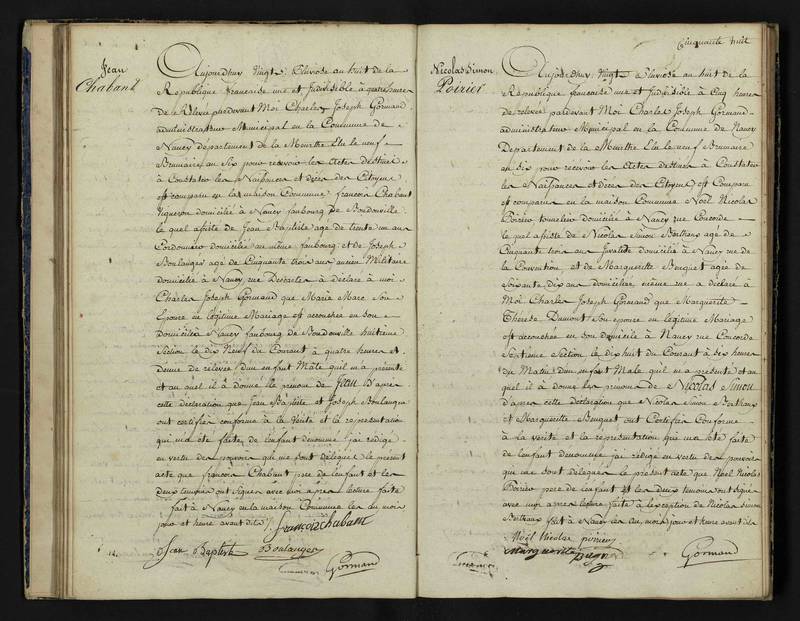 Jean
Chabant
Aujourdhuy Vingt Pluviose an huit de la
Republique francaise une et Indivisible à quatre heures
de Relevée pardevant Moi Charles Joseph Gormand
administrateur Municipal en la Commune de
Nancy département de la Meurthe Elu le neuf
Brumaire an Six pour recevoir les Actes destinés
à Constater les Naissances et décès des Citoyens
est comparu en la maison Commune françois Chabant
Vigneron domicilié à Nancy faubourg de Boudonville
le quel assisté de Jean Baptiste agé de trente un ans
Cordonnier domicilié au même faubourg et de Joseph
Boulanger agé de Cinquante trois ans ancien Militaire
domicilié à Nancy rue Descartes à déclaré à moi
Charles Joseph Gormand que Marie Marc Son
Epouse en légitime Mariage est accouchée en son
Domicile à Nancy faubourg de Boudonville huitieme
Section le dix Neuf du Courant à quatre heures et
demie de relevée d'un enfant Mâle qui m'a présenté
et au quel il à donné le prenom de Jean D'après
cette déclaration que Jean Baptiste et Joseph Boulanger
ont certifiée conforme à la Vérité et la représentation
qui m'a été faite de l'enfant denommé j'ai rédigé
en vertu des pouvoirs qui me sont délégués le présent
acte que françois Chabant pere de l'enfant et les
deux temoins ont signés avec moi après lecture faite
fait à Nancy en la maison Commune les an mois
jour et heure avant dits
francoichabant
Jean Baptiste Boulanger
Gormand
Cinquante huit
Nicolas Simon
Poirier
Aujourdhuy Vingt Pluviose an huit de la
Republique francaise une et Indivisible à Cinq heures
de relevée pardevant Moi Charles Joseph Gormand
administrateur Municipal en la Commune de Nancy
Departement de la Meurthe Elu le neuf Brumaire
an Six pour recevoir les Actes destinés à Constater
les Naissances et décès des Citoyens est Comparu
est comparu en la maison Commune Noël Nicolas
Poirier tonnelier domicilié à Nancy rue Concorde
le quel assisté de Nicolas Simon Berthans agé de
Cinquante trois ans Invalide domicilié à Nancy rue de
la Convention et de Marguerite Bouquet agée de
Soixante dix ans domiciliée même rue a déclaré à
Moi Charles Joseph Gormand que Marguerite
Therese Dumont Son epouse en legitime Mariage
est accouchée en son domicile à Nancy rue Concorde
Septieme Section le dix huit du Courant à dix heures
du Matin d'un enfant Male qui m'a présenté et au
quel il à donné les prenoms de Nicolas Simon
D'apres cette déclaration que Nicolas Simon Berthans
et Marguerite Bouquet ont Certifiée Conforme
à la verité et la représentation qui m'a été faite
de l'enfant denommé j'ai rédigé en vertu des pouvoirs
qui me sont délégués le présent acte que Noël Nicolas
Poirier pere de l'enfant et les deux temoins ont signé
avec moi apres lecture faite à l'exception de Nicolas Simon
Berthans fait à Nancy les an, mois, jour et heure avant dits
Noël Nicolas poirier
Marguerite
Gormand